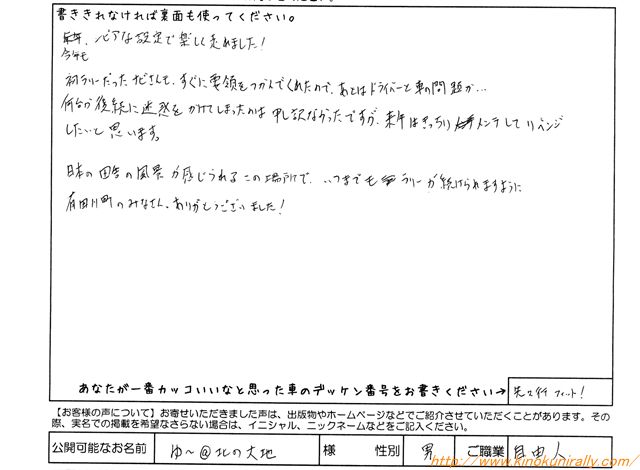 書ききれなければ裏面も使ってください。
今年も、シビアな設定で楽しく走れました!
初ラリーだった たださんも、すぐに要領をつかんでくれたので、あとはドライバーと車の問題か…
何台か後続に迷惑をかけてしまったのは申し訳なかったですが、来年はきっちりメンテしてリベンジ
したいと思います。
日本の田舎の風景が感じられるこの場所で、いつまでもラリーが続けられますように
有田川町のみなさん、ありがとうございました!
あなたが一番カッコいいなと思った車のゼッケン番号をお書きください→
フィット!
【お客様の声について】お寄せいただきました声は、出版物やホームページなどでご紹介させていただくことがあります。その
際、実名での掲載を希望なさらない場合は、イニシャル、ニックネームなどをご記入ください。
公開可能なお名前 ゆ〜@北の大地 様 性別 男 ご職業 自由人
http://www.kinokunirally.com